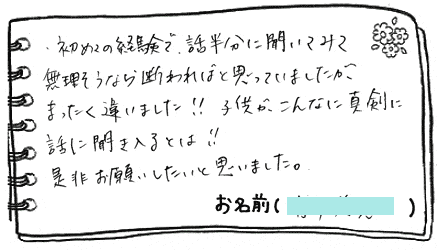 ・初めての経験で、話半分に聞いてみて
無理そうなら断わればと思っていましたが、
まったく違いました!! 子供が、こんなに真剣に
話に聞き入るとは!!
是非お願いしたいと思いました。
お名前( )